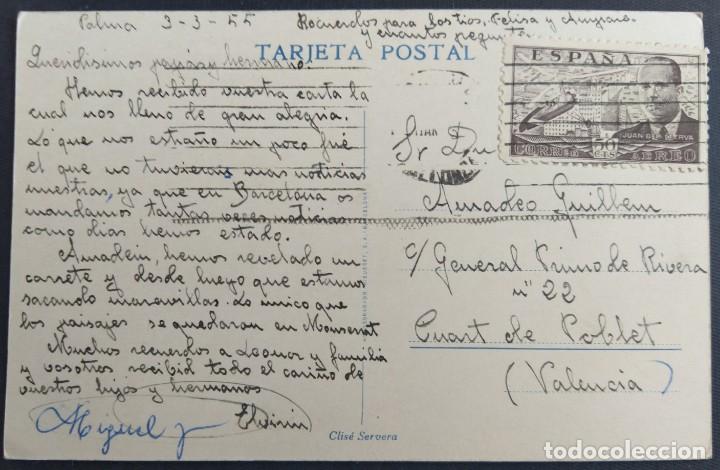 Palma 3-3-55
Recuerdos para los tios, Felisa y Amparo
y cuantos pregunten.
TARJETA POSTAL
ESPAÑA
JUAN DE LA CIERVA
CORREO 50 CTS AEREO
Queridisimos papás y hermano:
Hemos recibido vuestra carta la
cual nos lleno de gran alegria.
Lo que nos estraño un poco fué
el que no tuvierais mas noticias
nuestras, ya que en Barcelona os
mandamos tantas veces noticias
como dias hemos estado.
Amadein, hemos revelado un
carrete y desde luego que estamos
sacando maravillas. Lo unico que
los paisajes se quedaran en Monserrat
Muchos recuerdos a Leonor y familia
y vosotros recibid todo el cariño de
vuestos hijos y hermanos
Miguel y Elvirin
Sr Don
Amadeo Guillem
c/ General Primo de Rivera
nº 22
Cuart de Poblet
(Valencia)
Clisé Servera
todocoleccion.net